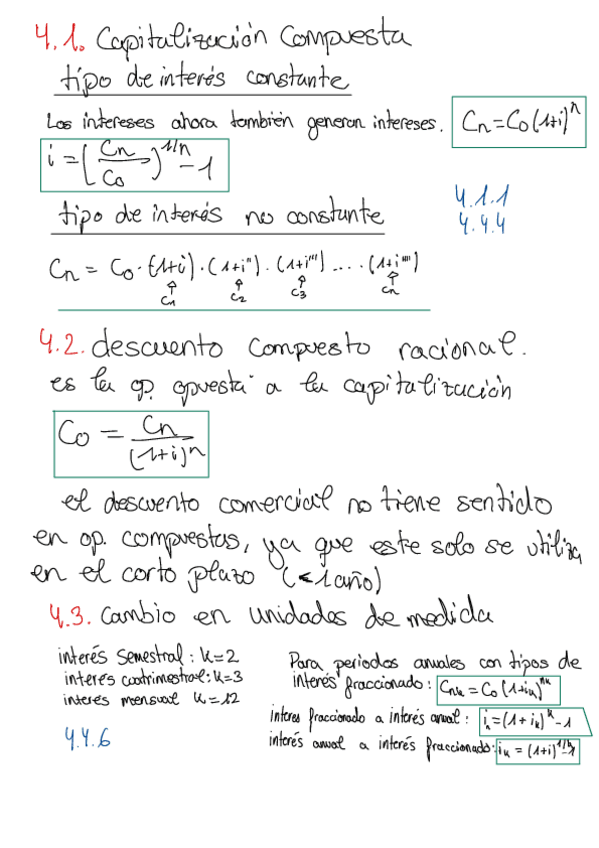 4.1. Capitalización Compuesta
tipo de interés constante
Los intereses ahora también generan intereses. Cn=Co(1+i)^n
i = (Cn/Co)^1/n - 1
tipo de interés no constante
4.1.1
4.4.4
Cn = Co·(1+i)·(1+i'')·(1+i''')....(1+i'''')
C1 C2 C3 Cn
4.2. descuento compuesto racional.
es la op. opuesta a la capitalización
Co = Cn/(1+i)^n
el descuento comercial no tiene sentido
en op. compuestas, ya que este solo se utiliza
en el corto plazo (<1 año)
4.3. Cambio en unidades de medida
interés semestral: k=2
interés cuatrimestral: k=3
interés mensual k=12
4.4.6
Para periodos anuales con tipos de
interés fraccionado: Cnk = Co (1+ik)^nk
interes fraccionado a interés anual: in=(1+ik)^k-1
interés anual a interés fraccionado: ik = (1+i)^1/k-1